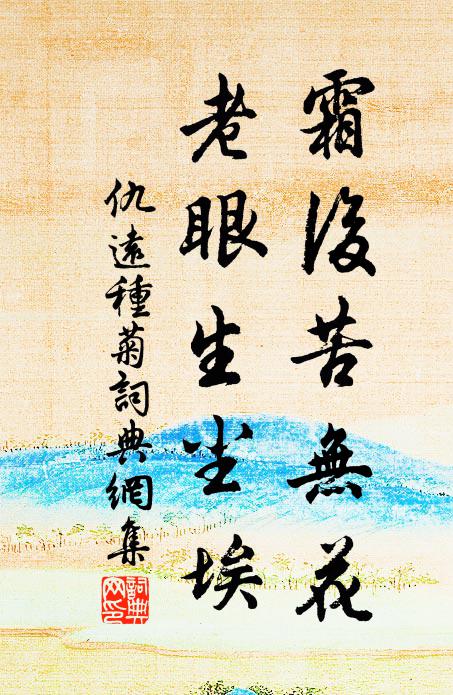 霜後苦無花
老眼生尘埃
仇遠種菊詞典網集